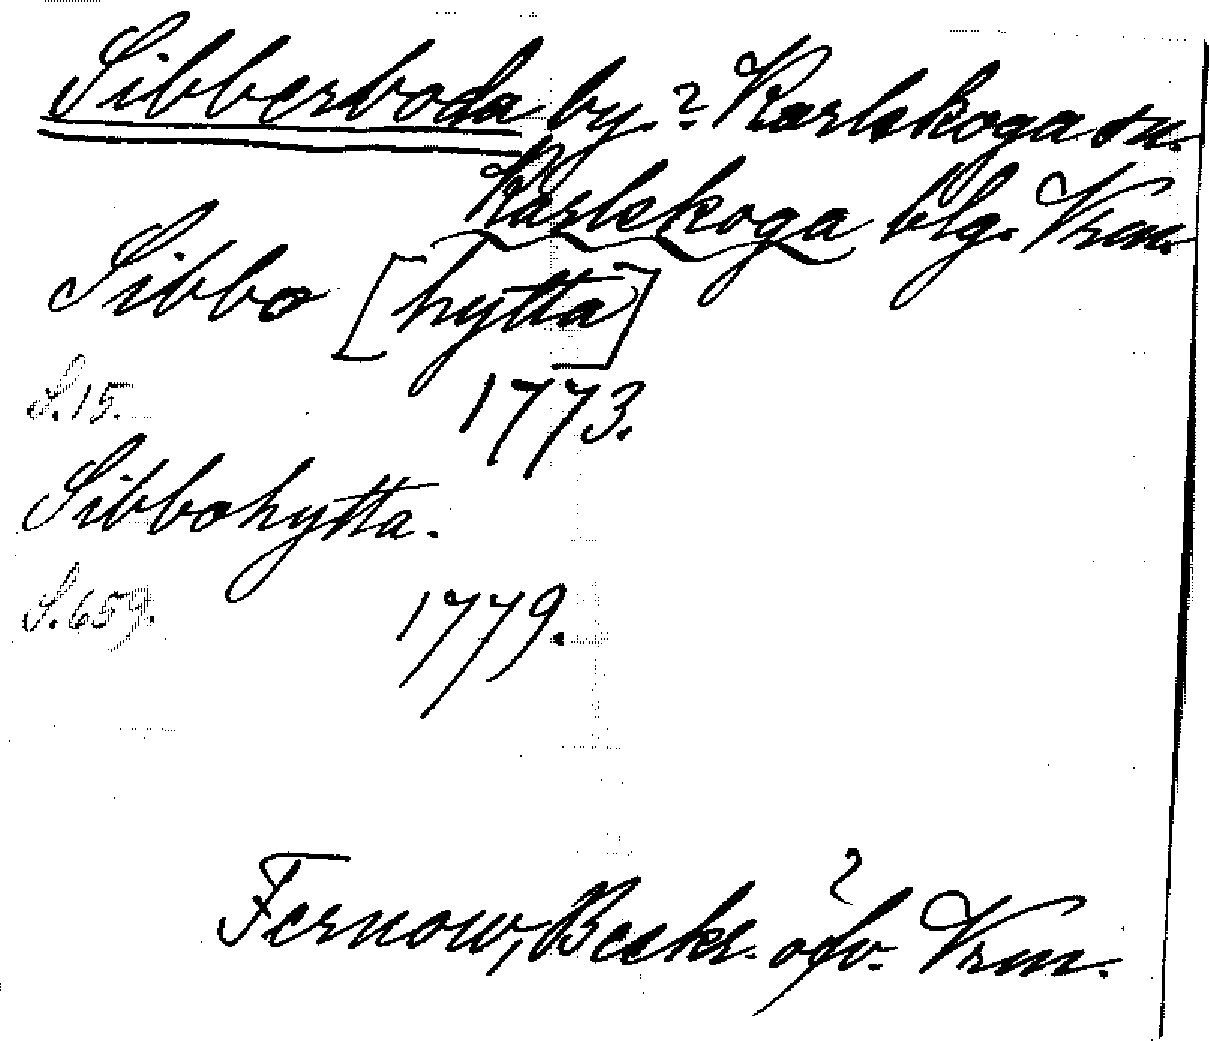 Sibberboda by.? Karlskoga sn.
Karlskoga blg. Vrm.
Sibbo [hytta]
S. 15. 1773.
Sibbohytta.
S. 659. 1779.
Fernow, Beskr. öfv. Vrm.